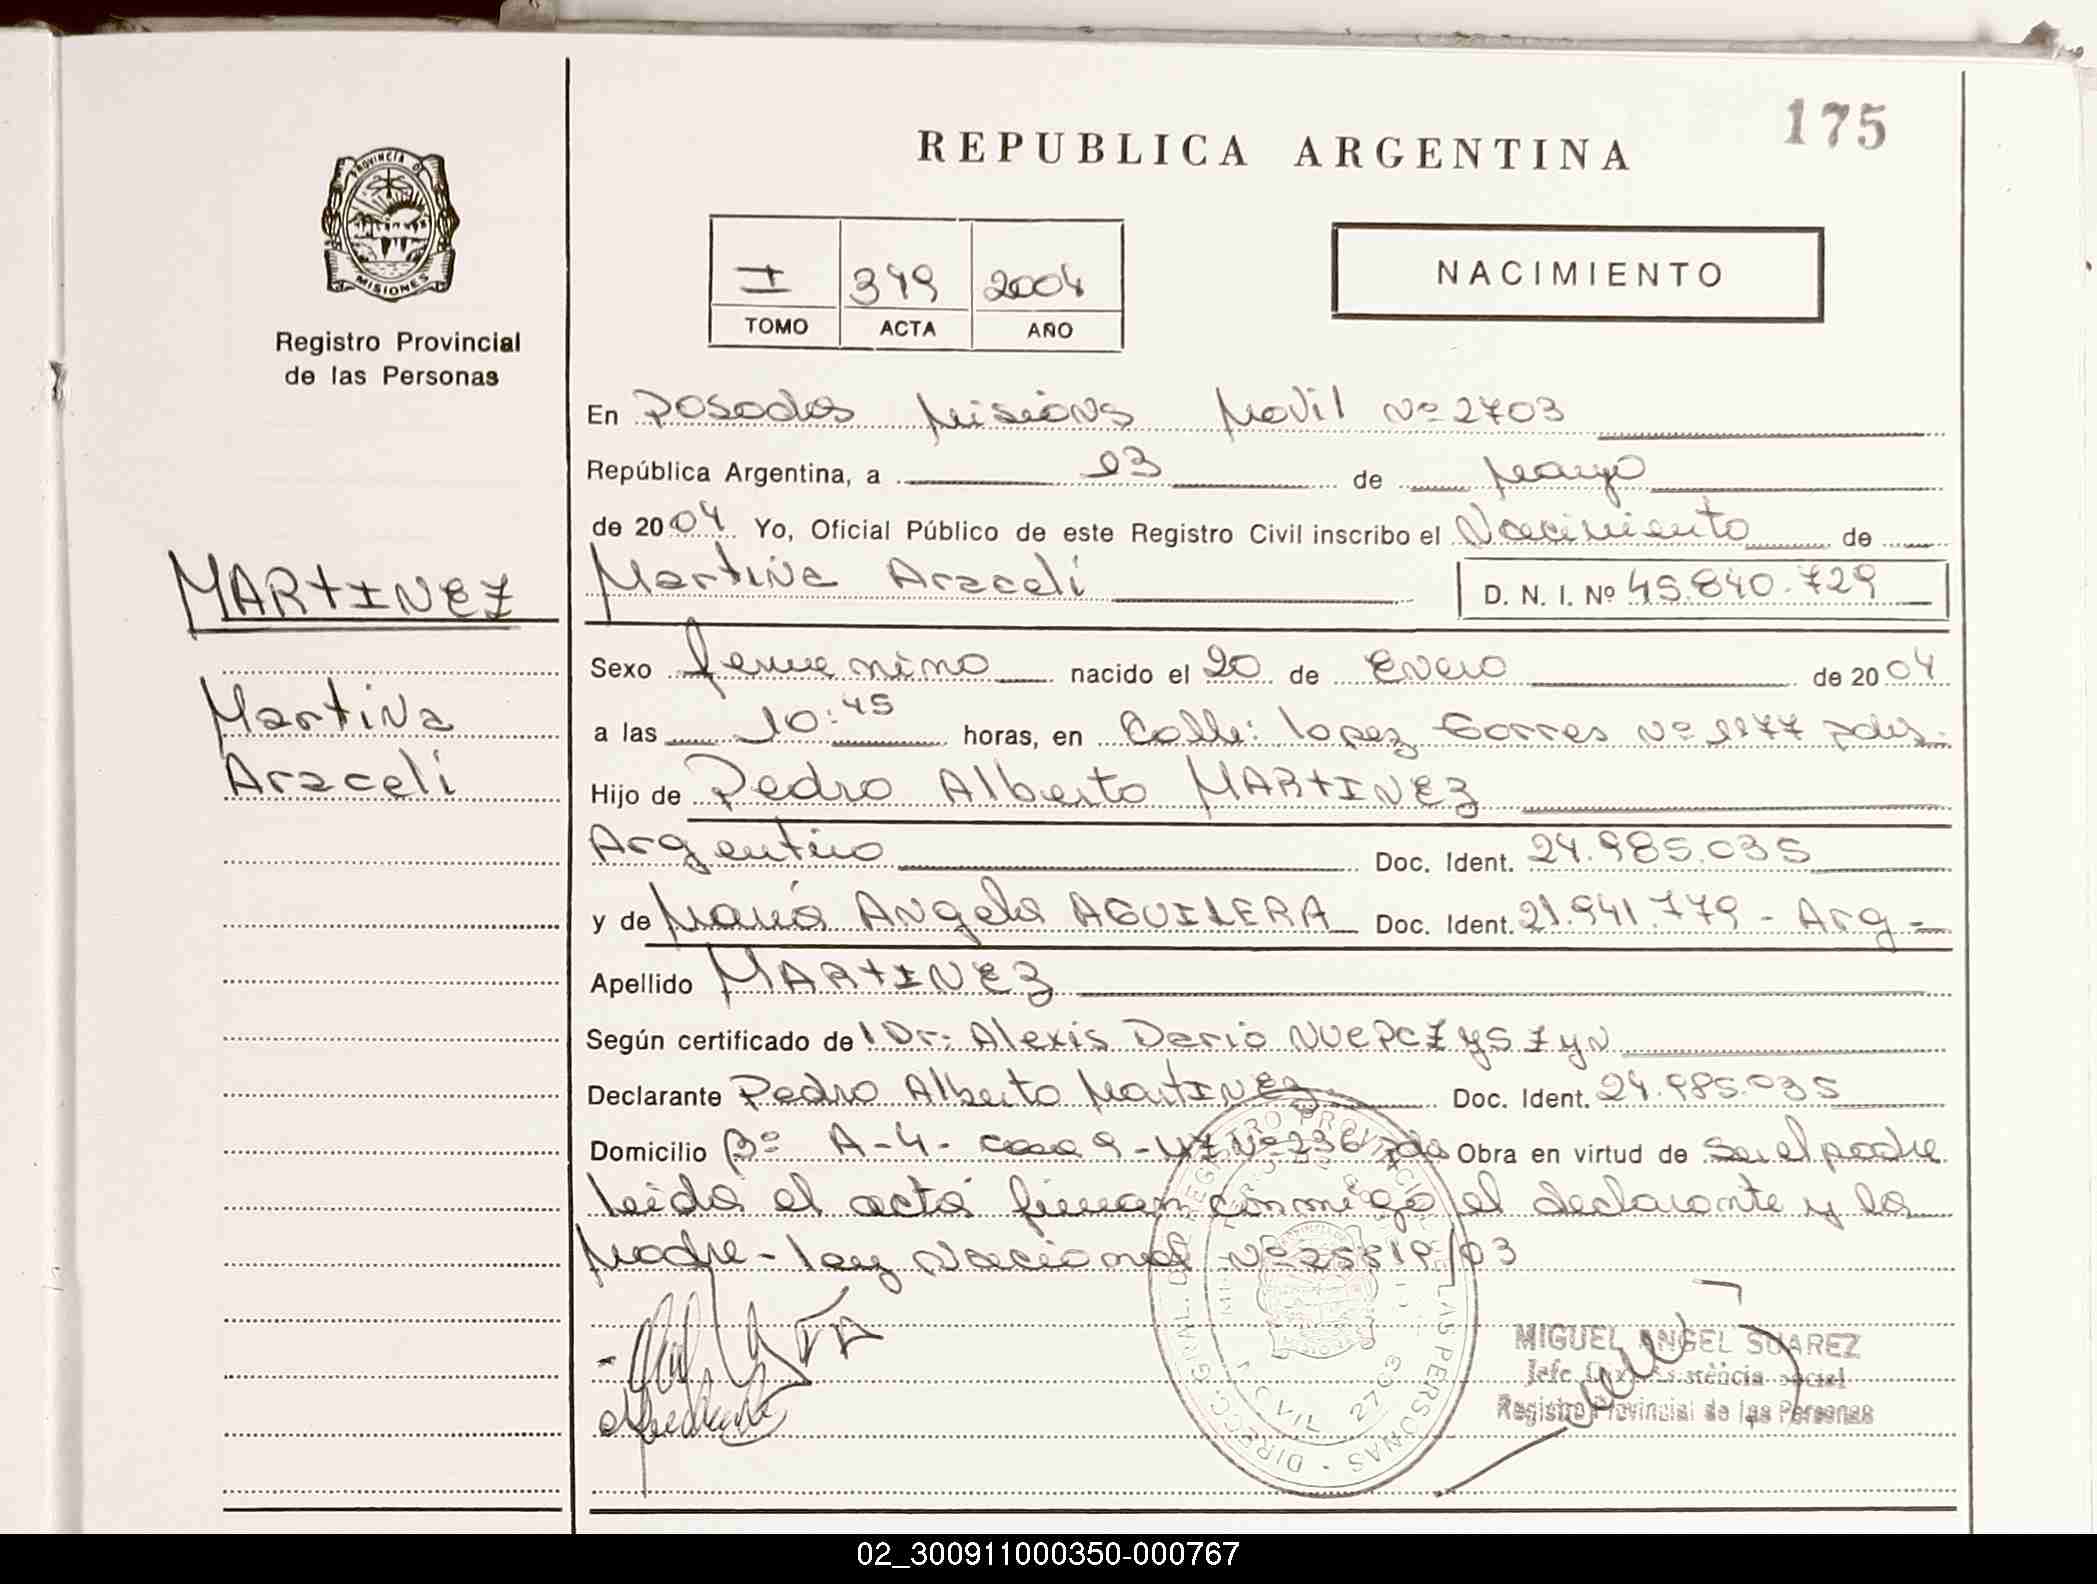 175
REPUBLICA ARGENTINA
PROVINCIA DE
MISIONES
Registro Provincial
de las Personas
I 349 2004
TOMO ACTA AÑO
NACIMIENTO
En Posadas Misiones Movil Nº 2703
República Argentina, a 03 de Mayo
de 2004 Yo, Oficial Público de este Registro Civil inscribo el Nacimiento de
Martina Araceli D. N. I. Nº 45.840.729
MARTINEZ
Martina
Araceli
Sexo femenino nacido el 20 de Enero de 2004
a las 10:45 horas, en Calle: Lopez Torres Nº 1177 pdas.
Hijo de Pedro Alberto MARTINEZ
Argentino Doc. Ident. 24.985.035
y de María Angela AGUILERA Doc. Ident. 21.941.779 - Arg -
Apellido MARTINEZ
Según certificado de Dr: Alexis Dario NUEPCZYSZYN
Declarante Pedro Alberto MartINEZ Doc. Ident. 24.985.035
Domicilio Bº A-4- casa 9 - Nº 236 pdas Obra en virtud de Ser el padre
leida el acta firman conmigo el declarante y la
Madre - ley Nacional Nº 25819/03
DIRECC. GRAL. DE REGISTRO PROVINCIAL DE LAS PERSONAS
MOVIL 2703
MIGUEL ANGEL SUAREZ
Jefe Asistencia Social
Registro Provincial de las Personas
02_300911000350-000767